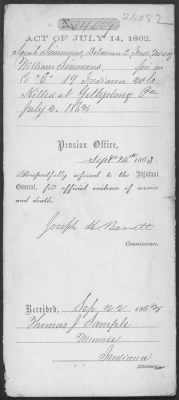 No. 14009
ACT OF JULY 14, 1862.
Sarah Simmons, Delaware Co. Ind.
William Simmons,
Co "C" 19 Indiana Vols.
Killed at Gettysburg Pa
July 2, 1863
Pension Office,
Sept 26th 1863
Respectfully referred to the Adjutant
General, for official evidence of service
and death.
Joseph H. Barrett
Commissioner.
Received, Sep 22 186
Thomas J. Sample
Muncie
Indiana
Attorney